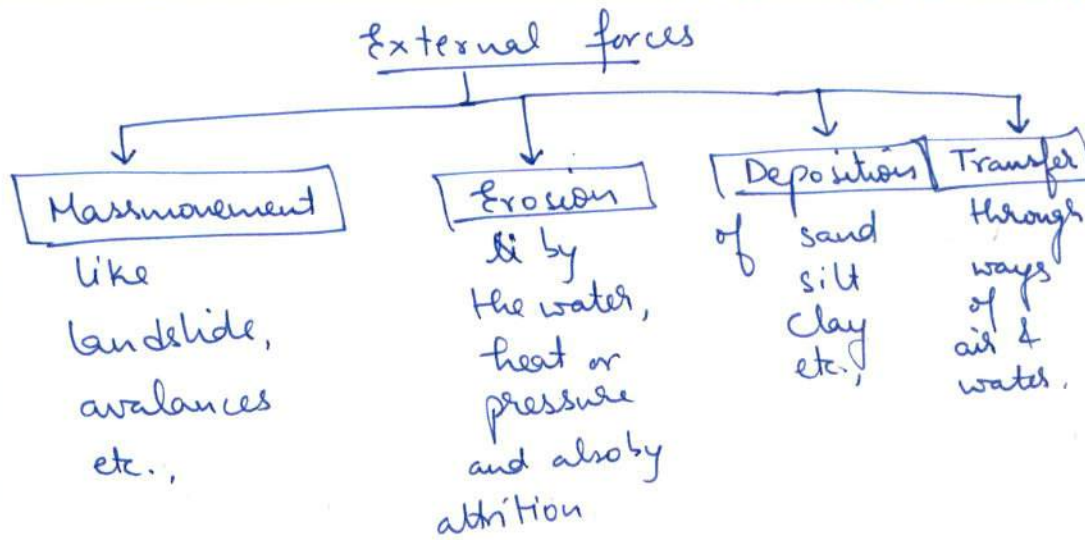 External forces
Massmovement
like
landslide,
avalances
etc.,
Erosion
by
the water,
heat or
pressure
and also by
attrition
Deposition
of sand
silt
clay
etc.,
Transfer
through
ways
of
air &
water.